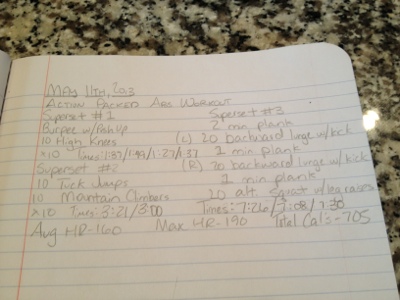 May 11th, 2013
Action Packed Abs Workout
Superset #1
Burpee w/ Push Up
10 High Knees
x10 Times: 1:37/1:49/1:27/1:37
Superset #2
10 Tuck Jumps
10 Mantain Climbers
x10 Times: 3:21/3:00
Superset #3
2 min plank
(L) 20 backward lunge w/ kick
2 min plank
(R) 20 backward lunge w/ kick
2 min plank
20 alt. squat w/ leg
Times: 7:26/7:08/7:30
Avg HR-160 Max HR-190 Total Cals-705